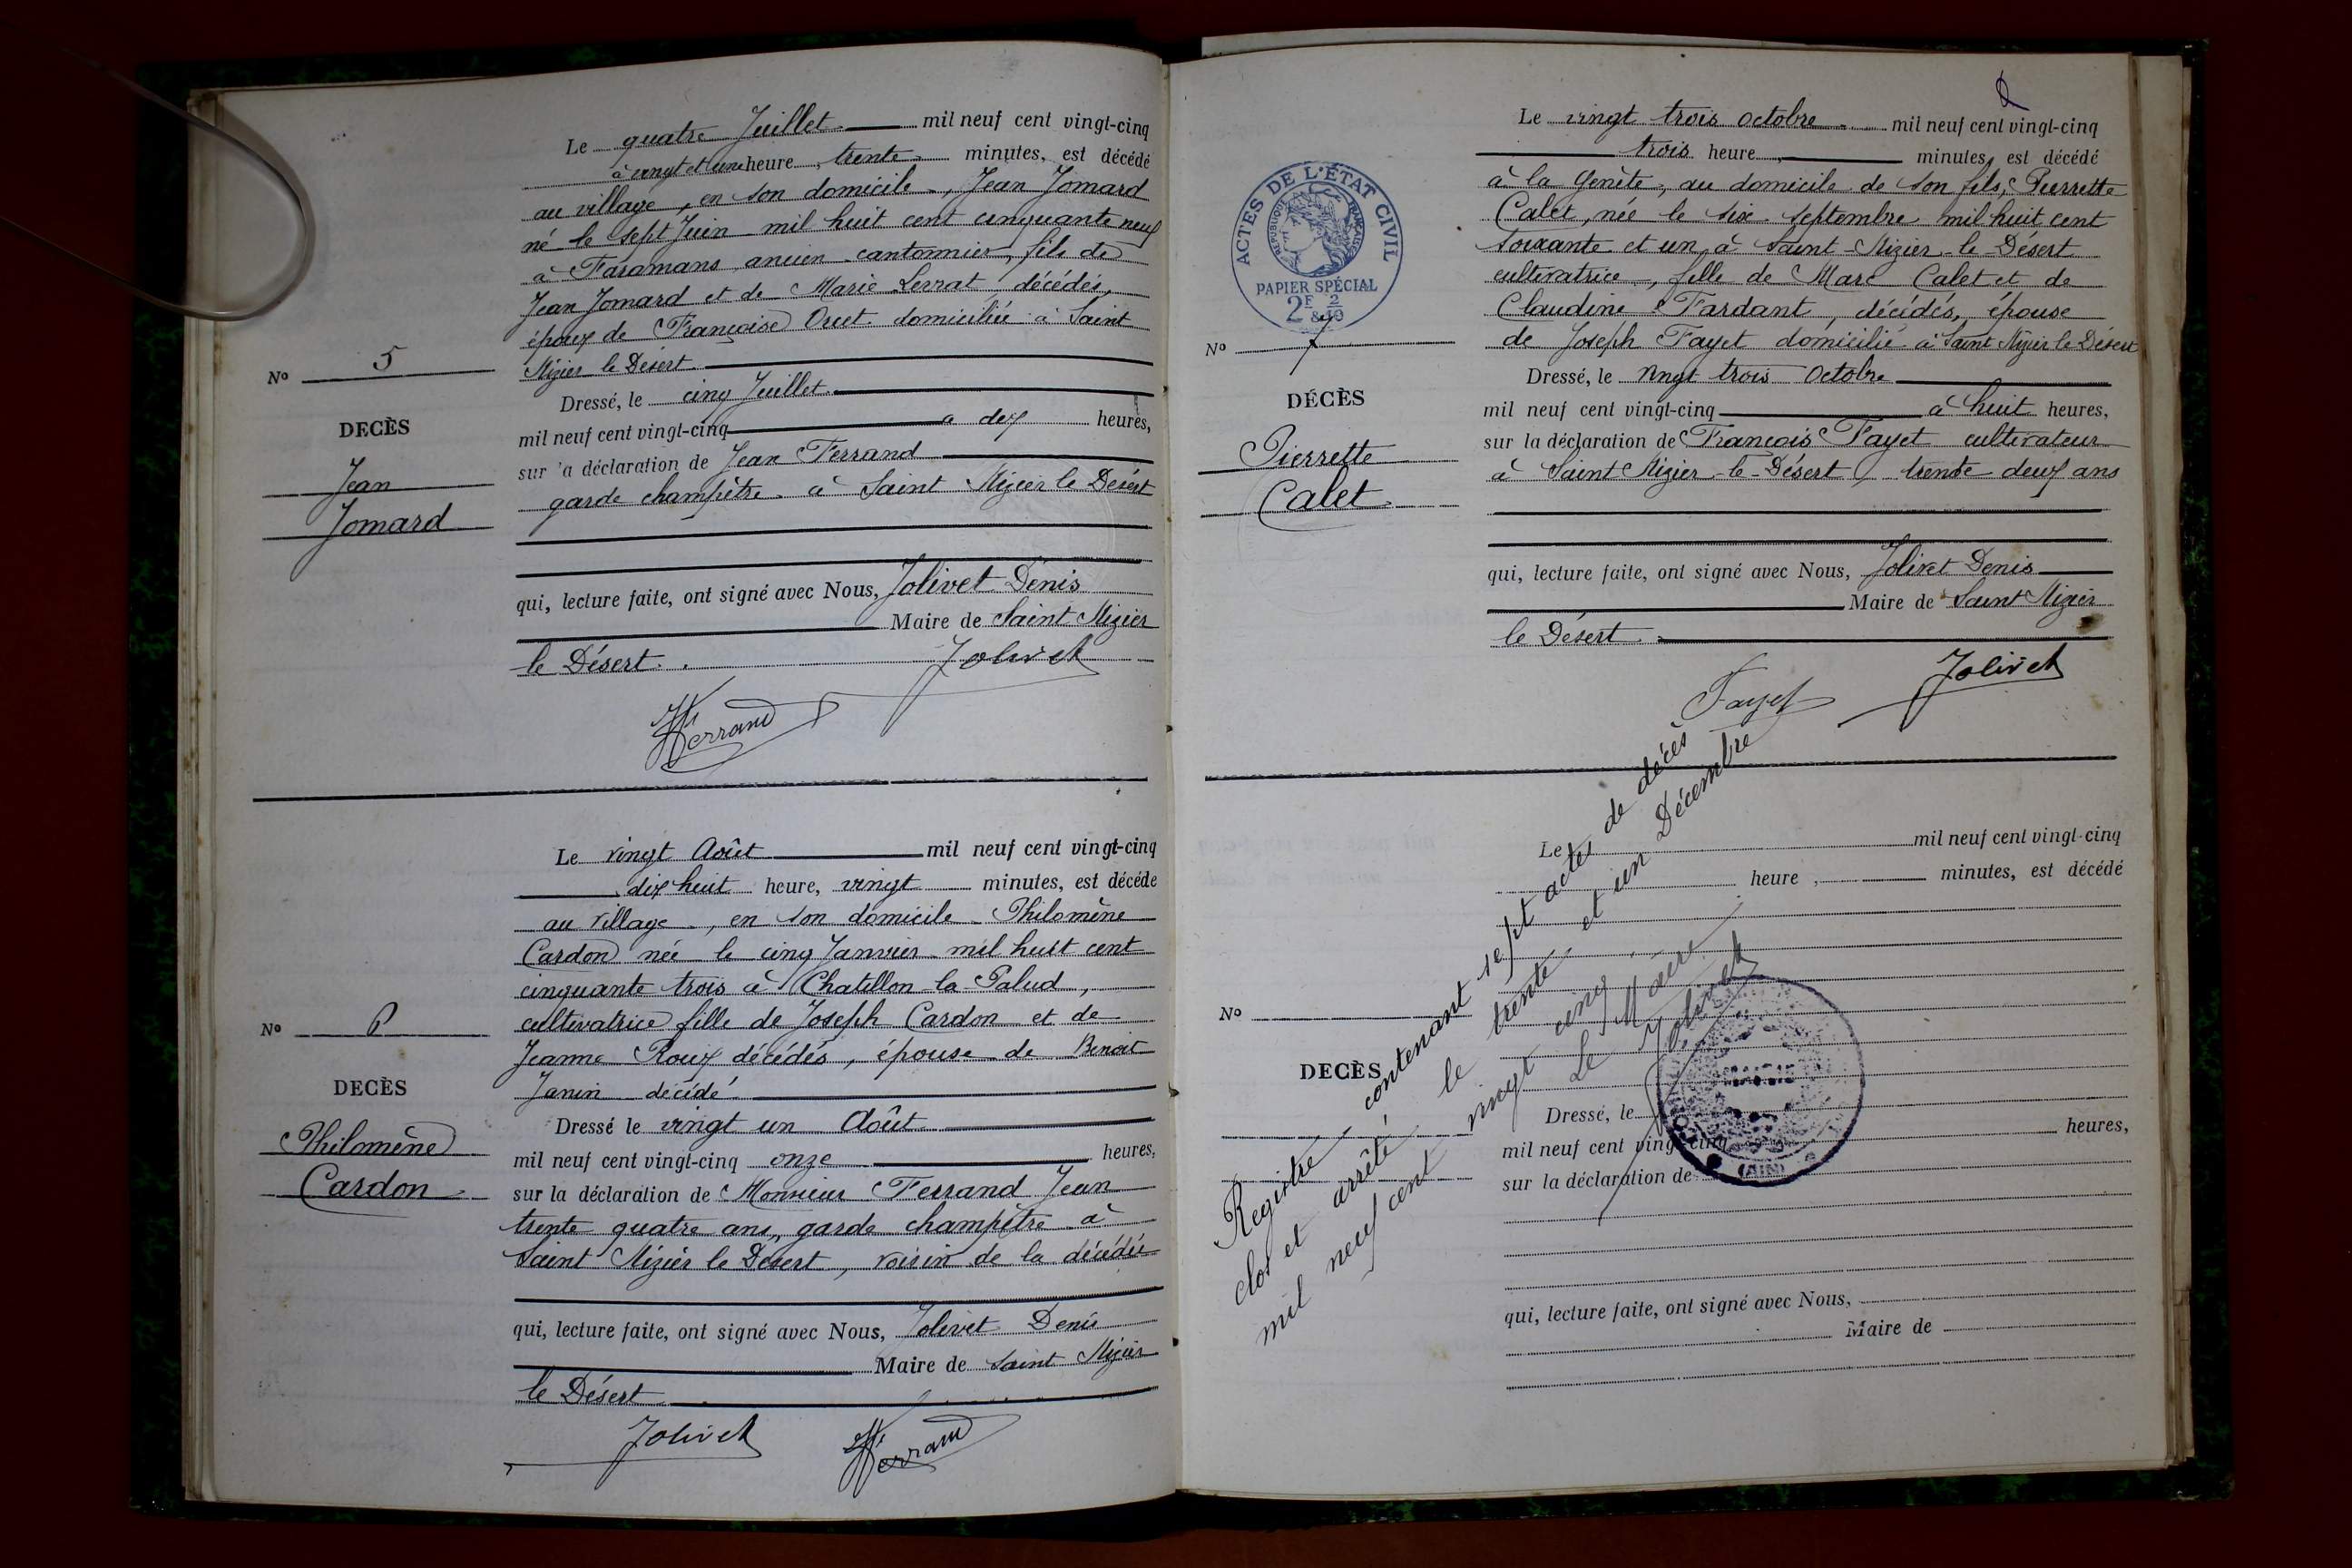 Le quatre Juillet mil neuf cent vingt-cinq
à vingt et une heure, trente minutes, est décédé
au village, en son domicile, Jean Jomard
né le sept Juin mil huit cent cinquante neuf
à Faramans ancien cantonnier, fils de
Jean Jomard et de Marie décédés,
époux de Françoise domiciliée à Saint
Nizier le Désert
No 5
DECÈS
Jean
Jomard
Dressé, le cinq Juillet
mil neuf cent vingt-cinq à dix heures,
sur la déclaration de Jean Ferrand
garde champêtre à Saint Nizier le Désert
qui, lecture faite, ont signé avec Nous, Jolivet Denis
Maire de Saint Nizier
le Désert.
Jolivet
Ferrand
Le vingt Août mil neuf cent vingt-cinq
dix huit heure, vingt minutes, est décédé
au village, en son domicile Philomène
Cardon née le cinq Janvier mil huit cent
cinquante trois à Chatillon la Palud,
cultivatrice fille de Joseph Cardon et de
Jeanne Roux décédés, épouse de Benoit
Janin décédé.
No 6
DECÈS
Philomène
Cardon
Dressé le vingt un Août
mil neuf cent vingt-cinq onze heures,
sur la déclaration de Monsieur Ferrand Jean
trente quatre ans, garde champêtre à
Saint Nizier le Désert, voisin de la décédée
qui, lecture faite, ont signé avec Nous, Jolivet Denis
Maire de Saint Nizier
le Désert
Jolivet Ferrand
ACTES DE L'ÉTAT CIVIL
RÉPUBLIQUE FRANÇAISE
PAPIER SPÉCIAL
2F & 2/10
No 7
DÉCÈS
Pierrette
Calet
Le vingt trois octobre mil neuf cent vingt-cinq
trois heure, minutes, est décédé
à la Genète, au domicile de son fils, Pierrette
Calet, née le six septembre mil huit cent
soixante et un à Saint-Nizier-le-Désert
cultivatrice, fille de Marc Calet et de
Claudine Fardant, décédés, épouse
de Joseph Fayet domicilié à Saint Nizier le Désert
Dressé, le vingt trois Octobre
mil neuf cent vingt-cinq à huit heures,
sur la déclaration de François Fayet cultivateur
à Saint Nizier-le-Désert, trente deux ans
qui, lecture faite, ont signé avec Nous, Jolivet Denis
Maire de Saint Nizier
le Désert
Fayet Jolivet
Le mil neuf cent vingt-cinq
heure, minutes, est décédé
No
DECÈS
Dressé, le
mil neuf cent vingt-cinq heures,
sur la déclaration de
qui, lecture faite, ont signé avec Nous,
Maire de
Registre contenant sept actes de décès
clos et arrêté le trente et un Décembre
mil neuf cent vingt cinq.
Le Maire
Jolivet
MAIRIE
(AIN)